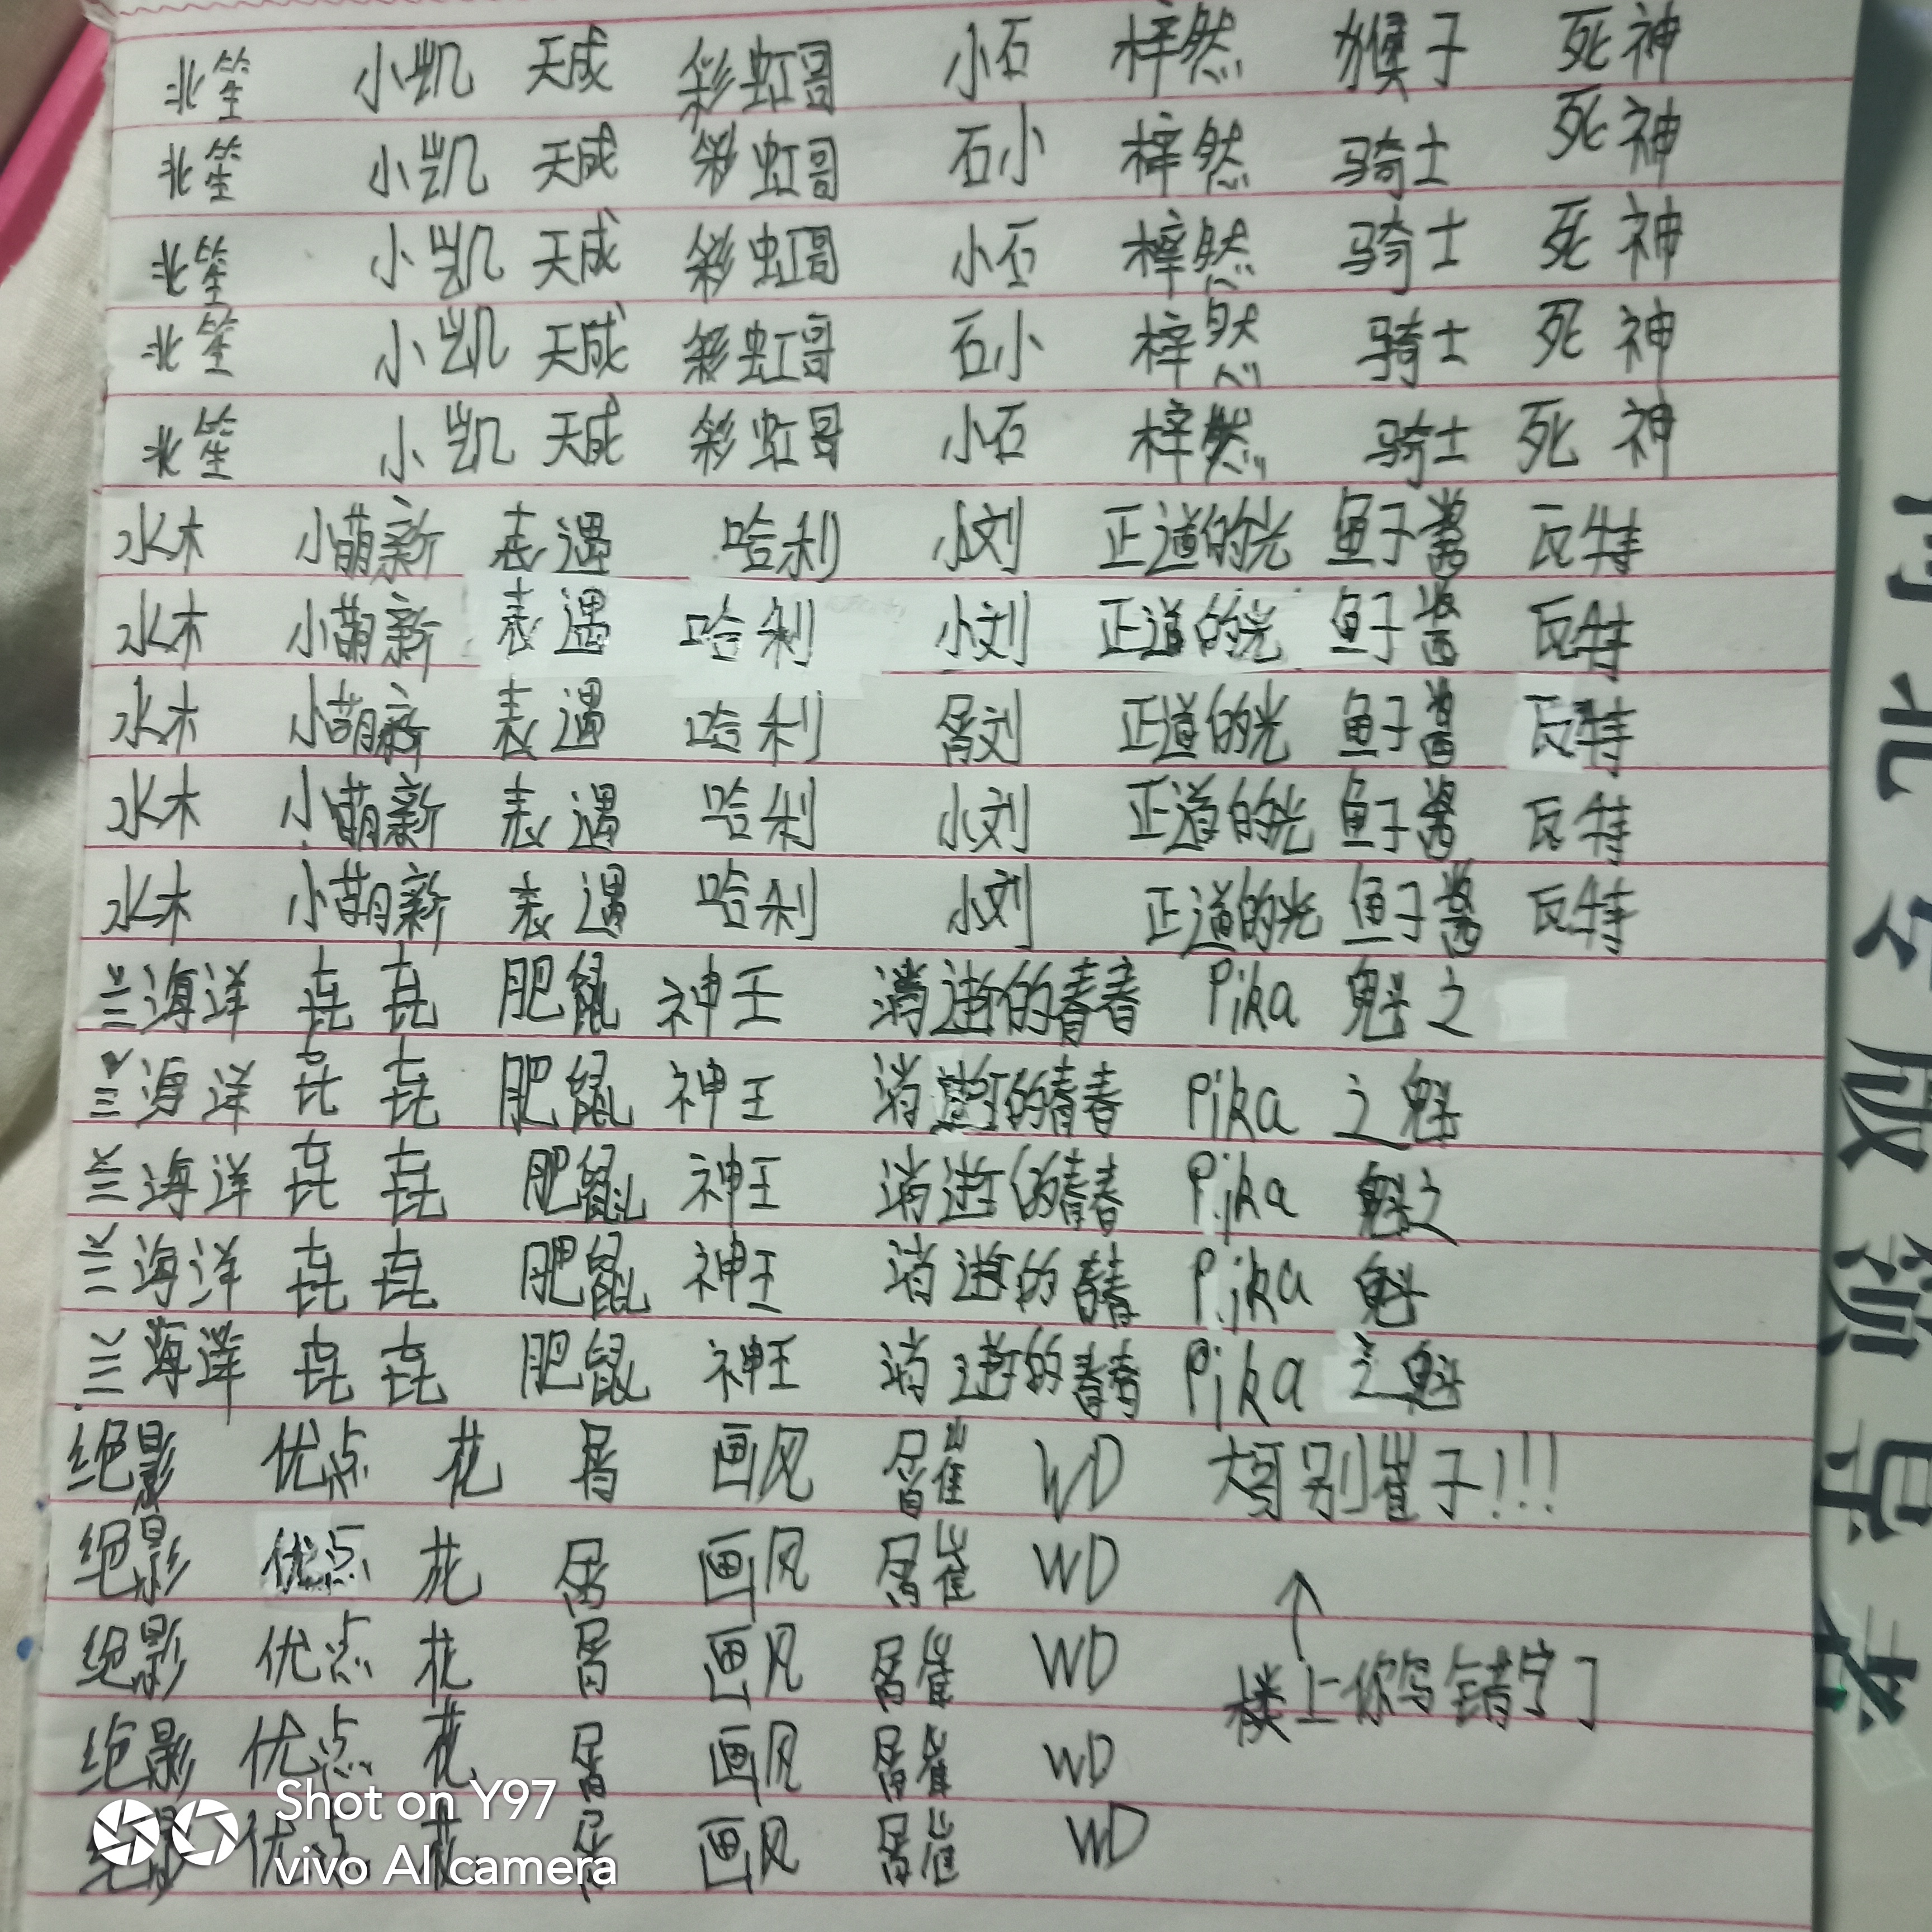 北笙 小凯 天成 彩虹哥 小石 梓然 猴子 死神
北笙 小凯 天成 彩虹哥 石小 梓然 骑士 死神
北笙 小凯 天成 彩虹哥 小石 梓然 骑士 死神
北笙 小凯 天成 彩虹哥 石小 梓然 骑士 死神
北笙 小凯 天成 彩虹哥 小石 梓然 骑士 死神
水木 小萌新 表遇 哈利 小刘 正道的光 鱼子酱 瓦特
水木 小萌新 表遇 哈利 小刘 正道的光 鱼子酱 瓦特
水木 小萌新 表遇 哈利 刘 正道的光 鱼子酱 瓦特
水木 小萌新 表遇 哈利 小刘 正道的光 鱼子酱 瓦特
水木 小萌新 表遇 哈利 小刘 正道的光 鱼子酱 瓦特
兰海洋 垚 垚 肥鼠 神王 消逝的青春 Pika 魁之
兰海洋 垚 垚 肥鼠 神王 消逝的青春 Pika 之魁
兰海洋 垚 垚 肥鼠 神王 消逝的青春 Pika 魁之
兰海洋 垚 垚 肥鼠 神王 消逝的青春 Pika 魁
兰海洋 垚 垚 肥鼠 神王 消逝的青春 Pika 之魁
绝影 优点 花 画风 WD 大哥别崔子!!!
绝影 优点 花 画风 WD
绝影 优点 花 画风 WD 楼上你写错字了
绝影 优点 花 画风 WD
绝影 优点 花 画风 WD
Shot on Y97
vivo AI camera